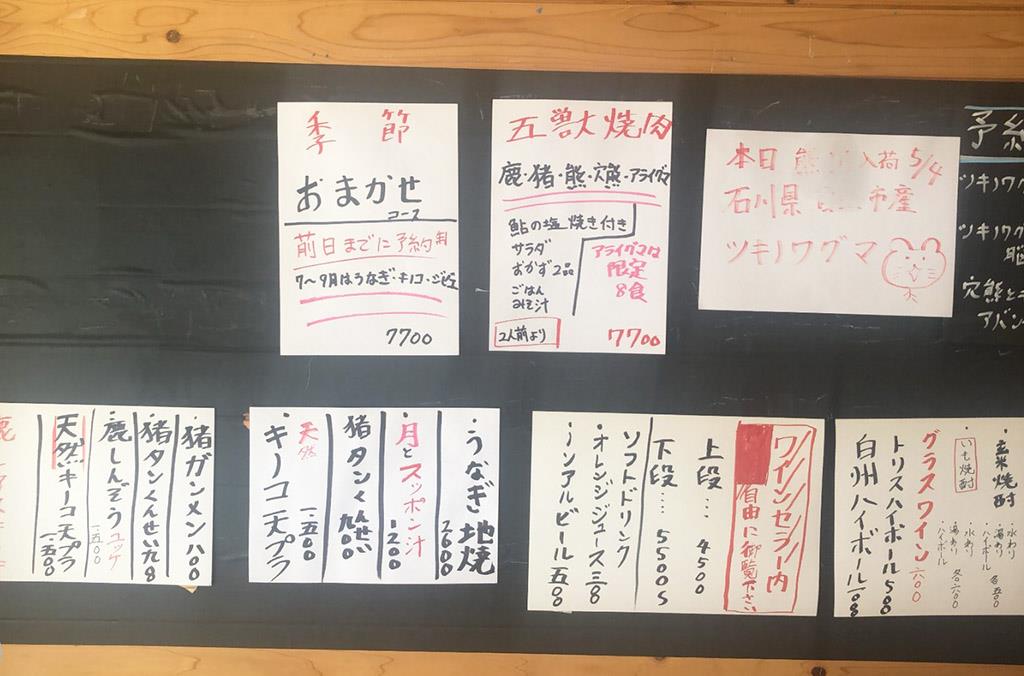 季節
おまかせ
コース
前日までに予約制
7～9月はうなぎ・キノコ・ジビエ
7700
五獣焼肉
鹿・猪・熊・穴熊・アライグマ
鮎の塩焼き付き
サラダ
おかず2品
ごはん
みそ汁
アライグマは
限定
8食
2人前より
7700
本日 熊 入荷 5/4
石川県 市産
ツキノワグマ
予約
ツキノワグ
ツキノワグ
脳
穴熊と
アバン
・うなぎ地焼
2600
・月とスッポン汁
1200
猪タンくんせい
900
・キノコ天プラ
天然
1.500
・猪ガンメン 八00
・猪タンくんせい 九00
・鹿しんぞうユッケ
1.500
天然キノコ天プラ
1.500
鹿
ワインセラー内
自由に御覧下さい
上段…. 4500
下段…. 5500
ソフトドリンク
・オレンジジュース 三00
・ノンアルビール 五00
・玄米焼酎
・水わり
・湯わり
・ハイボール
各五00
・いも焼酎
・水わり
・湯わり
・ハイボール
各六00
グラスワイン 六00
トリスハイボール 500
白州ハイボール